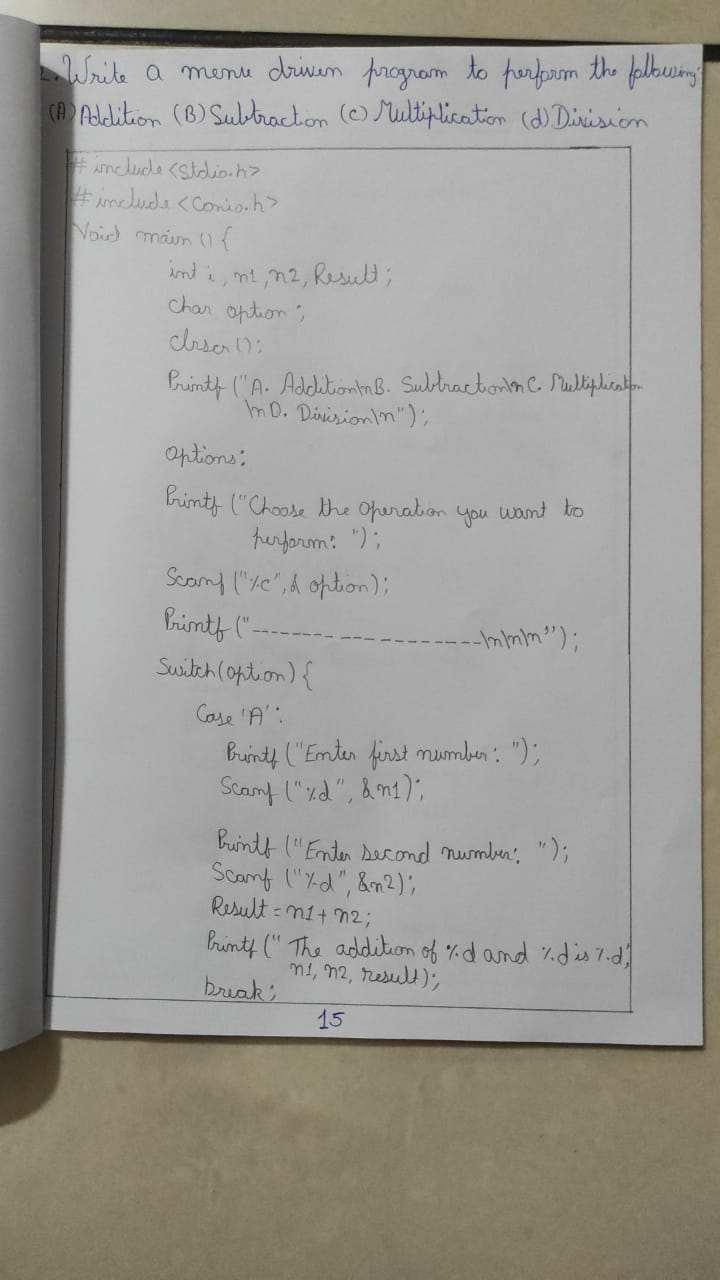 2. Write a menu driven program to perform the following:
(A) Addition (B) Subtraction (c) Multiplication (d) Division
# include <Stdio.h>
# include <Conio.h>
Void main () {
int i, n1, n2, Result;
Char option;
Clrscr ();
Printf ("A. Addition\nB. Subtraction\nC. Multiplication
\nD. Division\n");
Options:
Printf ("Choose the operation you want to
perform: ");
Scanf ("%c", & option);
Printf ("--------------------\n\n\n");
Switch (option) {
Case 'A':
Printf ("Enter first number: ");
Scanf ("%d", &n1);
Printf ("Enter second number: ");
Scanf ("%d", &n2);
Result = n1 + n2;
Printf (" The addition of %d and %d is %d",
n1, n2, result);
break;
15